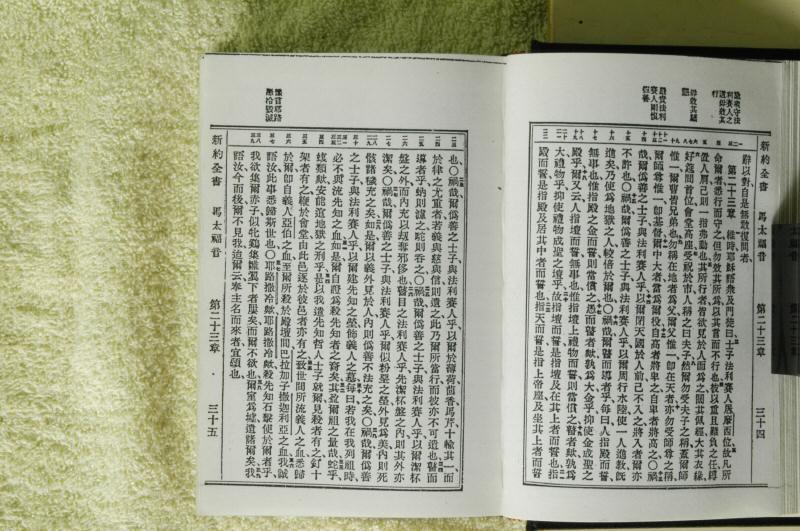 新約全書 馬太福音 第二十三章 三十四
辭以對自是無敢復問者
第二十三章 維時耶穌語衆及門徒曰士子法利賽人居摩西位故凡所
命爾者悉行而守之但勿效其所爲以其言而不行也彼以重且難負之任縛
置人肩己則一指弗動也其所行者皆欲見於人而爲之闊其佩經大其衣緣
好筵間首位會堂高座受祝於市人稱之曰夫子然爾勿受夫子之稱蓋爾師
惟一爾曹皆兄弟也勿稱在地者爲父爾父惟一即在天者亦勿受師尊之稱
爾師尊惟一即基督爾中大者當爲爾役自高者將卑之自卑者將高之禍
哉爾爲善之士子與法利賽人乎以爾閉天國於人前己不入之將入者爾亦
不許也禍哉爾爲善之士子與法利賽人乎以爾周行水陸使一人進教旣
進矣乃使爲地獄之人較倍於爾也禍哉爾瞽而導者乎每曰人指殿而誓
無事也惟指殿之金而誓則當償之愚而瞽者歟孰爲大金乎抑使金成聖之
殿乎爾又云人指壇而誓無事也惟指壇上禮物而誓則當償之瞽者歟孰爲
大禮物乎抑使禮物成聖之壇乎故指壇而誓是指壇及在其上者而誓也指
殿而誓是指殿及居其中者而誓也指天而誓是指上帝座及坐其上者而誓
新約全書 馬太福音 第二十三章 三十五
也禍哉爾爲善之士子與法利賽人乎以爾於薄荷茴香馬芹十輸其一而
於律之尤重者若義與慈與信則遺之此乃爾所當行而彼亦不可遺也瞽而
導者乎蚋則濾之駝則吞之禍哉爾爲善之士子與法利賽人乎以爾潔杯
盤之外而內充以刼奪邪侈也瞽目之法利賽人乎先潔杯盤之內則其外亦
潔矣禍哉爾爲善之士子與法利賽人乎以爾似粉堊之塋外見爲美內則死
骸諸穢充之矣如是爾以義外見於人內則僞善不法充之矣禍哉爾爲善
之士子與法利賽人乎以爾建先知之塋飾義人之墓每曰若我在我列祖時
必不與流先知之血如是爾自證爲殺先知者之裔矣其盈爾祖之量哉蛇乎
蝮類歟安能逭地獄之刑乎是以我遣先知哲人士子就爾見殺者有之釘十
架者有之鞭於會堂由此邑逐於彼邑者亦有之致世間所流義人之血悉歸
於爾即自義人亞伯之血至爾所殺於殿壇間巴拉加子撒迦利亞之血我誠
語汝此事悉歸斯世也耶路撒冷歟耶路撒冷歟殺先知石擊使於爾者乎
我欲集爾赤子似牝雞集雛翼下者屢矣而爾不欲也爾室爲墟遺諸爾矣我
語汝今而後爾不見我迨爾云奉主名而來者宜頌也